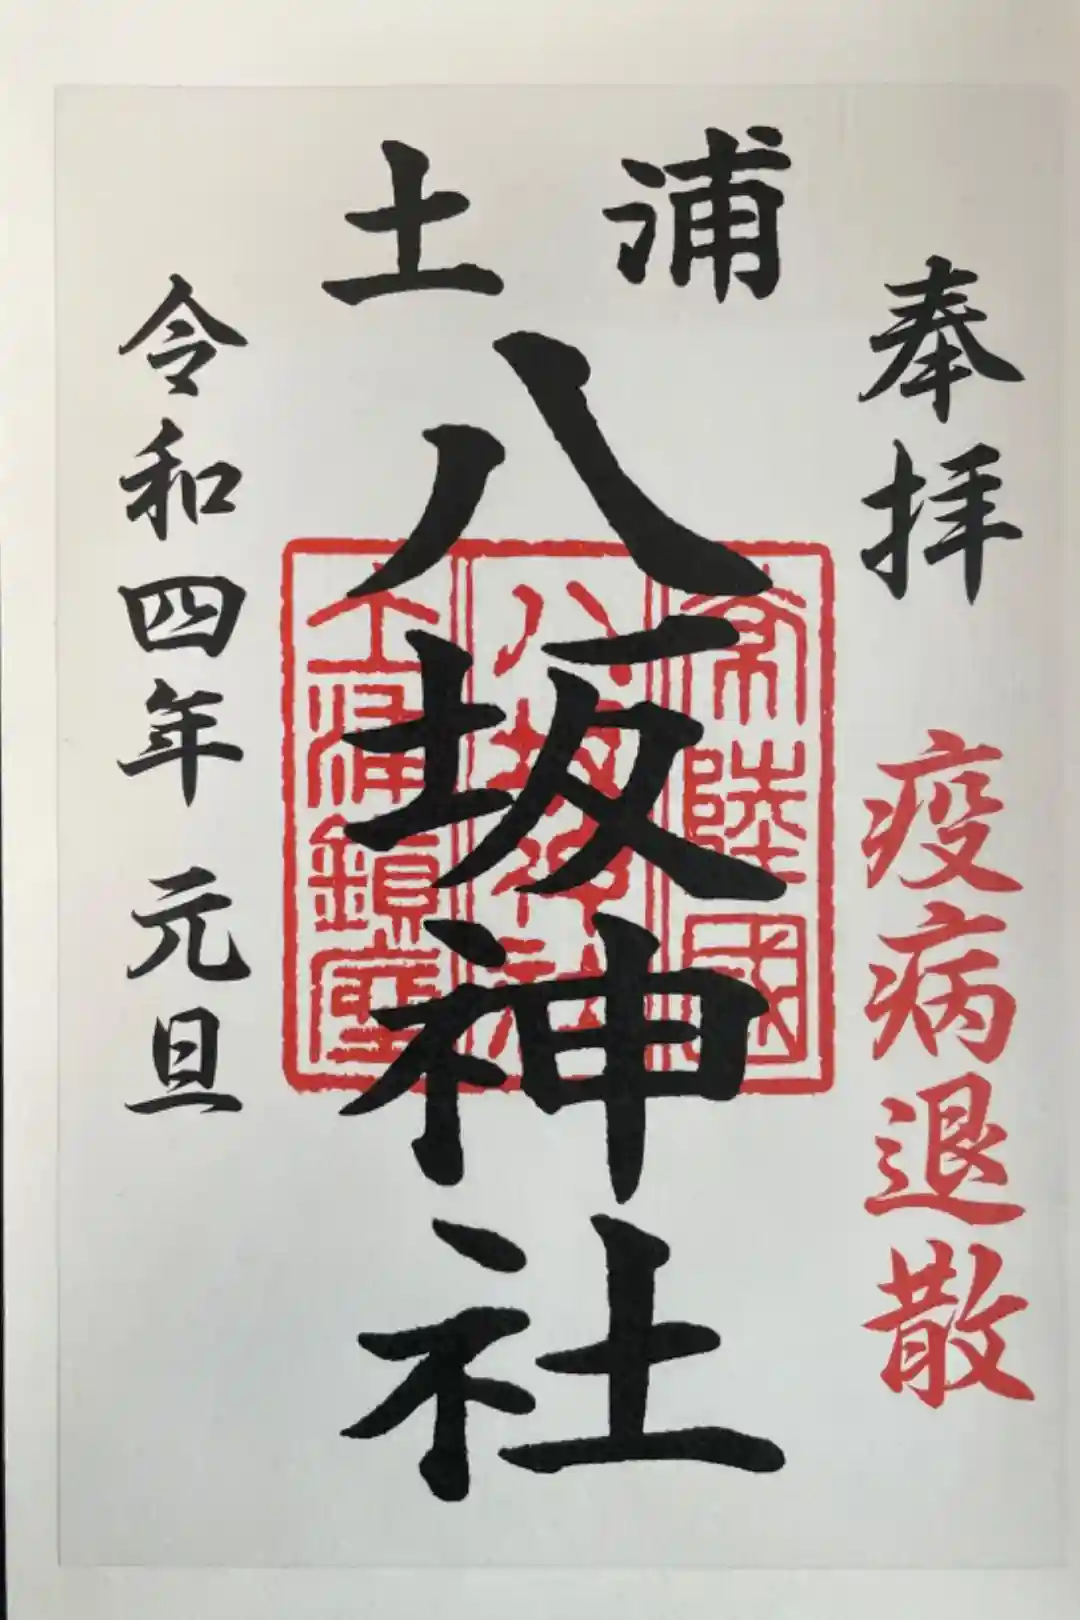 奉拝 疫病退散
土浦
八坂神社
常陸國
八坂神社
土浦鎮座
令和四年 元旦